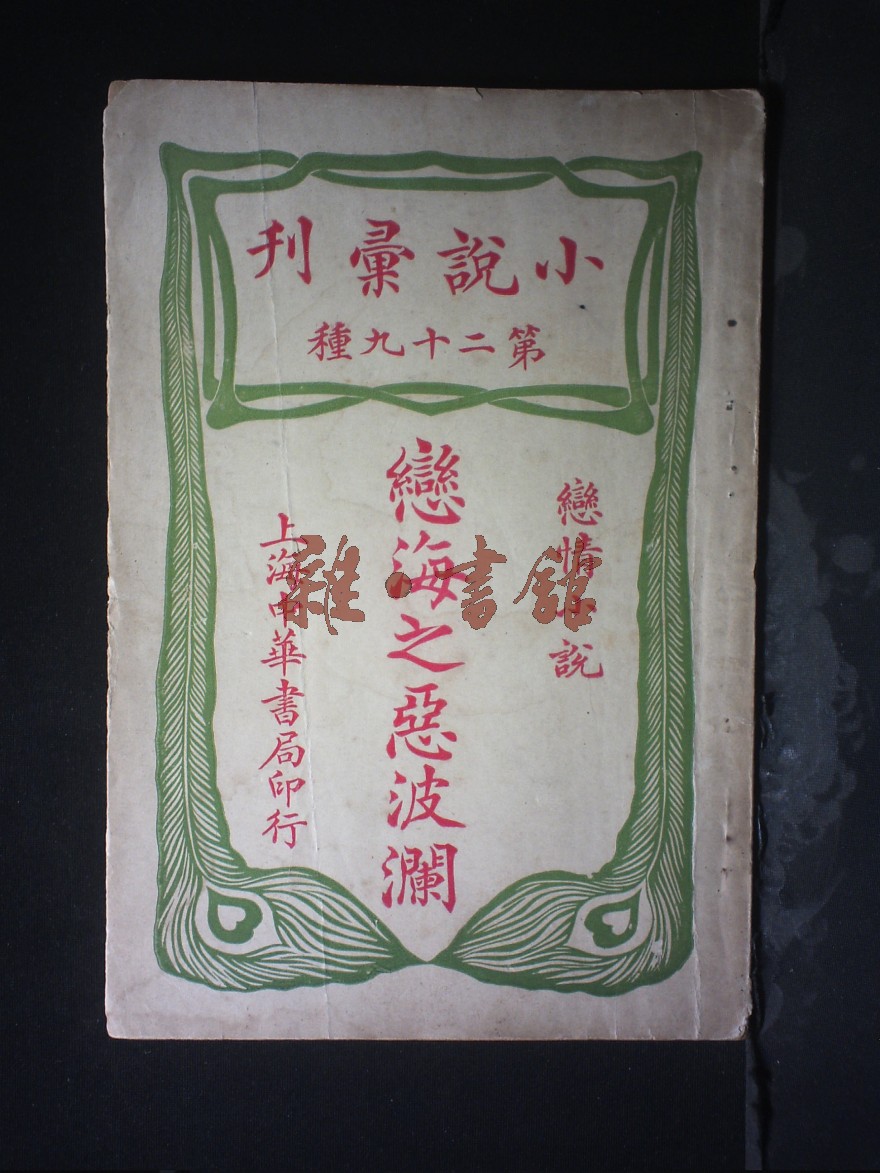 小說彙刊
第二十九種
戀情小說
戀海之惡波瀾
上海中華書局印行
雜·書館